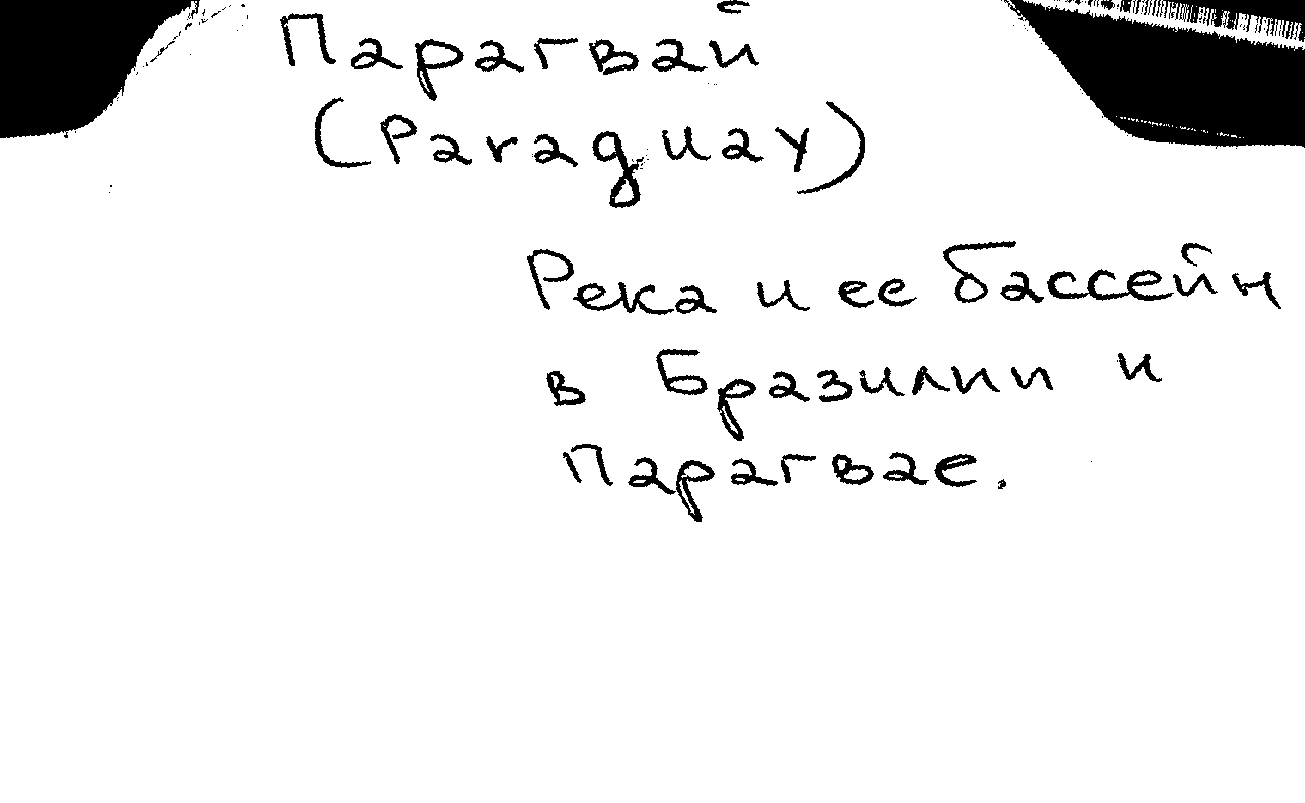 Парагвай
(Paraguay)
Река и ее бассейн
в Бразилии и
Парагвае.